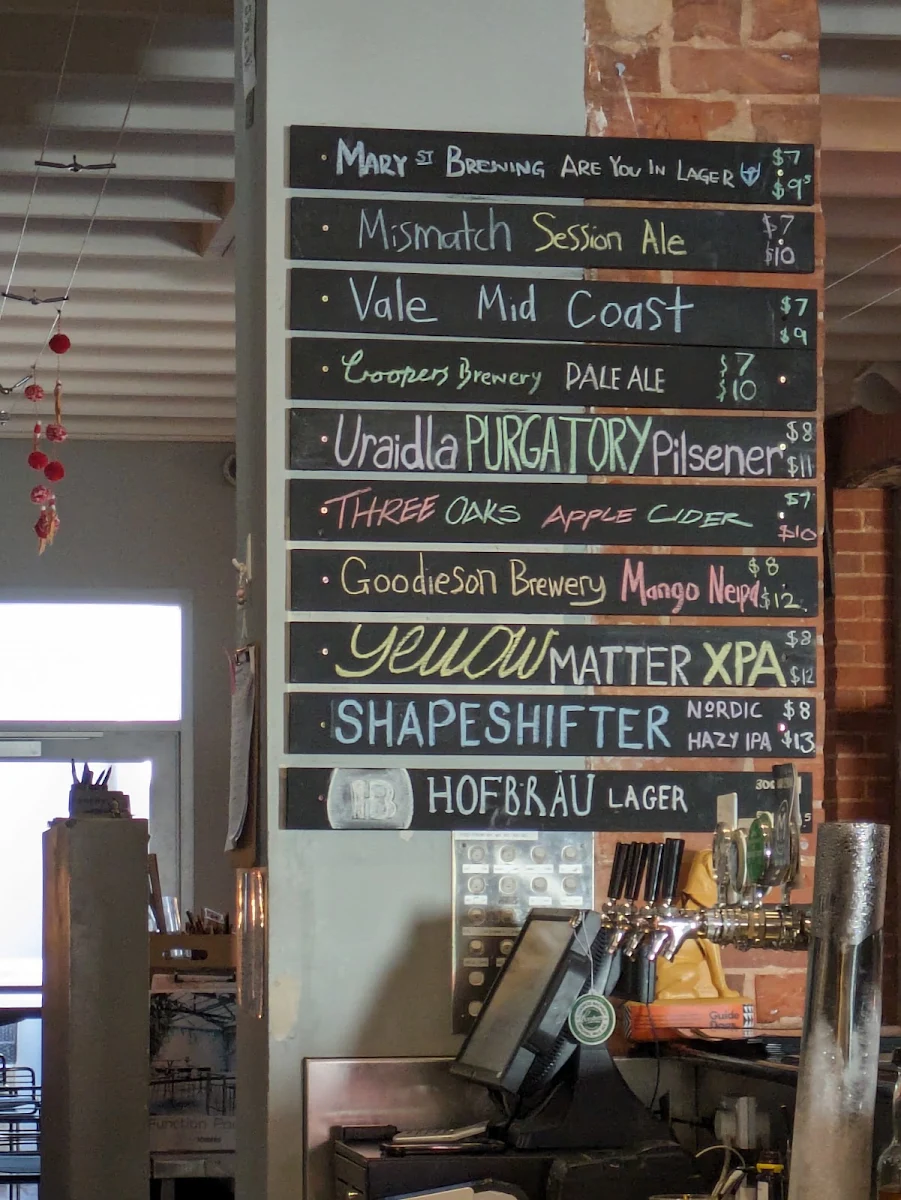 MARY ST BREWING ARE YOU IN LAGER $7
$9⁵
Mismatch Session Ale $7
$10
Vale Mid Coast $7
$9
Coopers Brewery PALE ALE $7
$10
Uraidla PURGATORY Pilsener $8
$11
THREE OAKS APPLE CIDER $7
$10
Goodieson Brewery Mango Neipa $8
$12
Yellow MATTER XPA $8
$12
SHAPESHIFTER NORDIC $8
HAZY IPA $13
HB HOFBRÄU LAGER
Guide
Dogs
Function